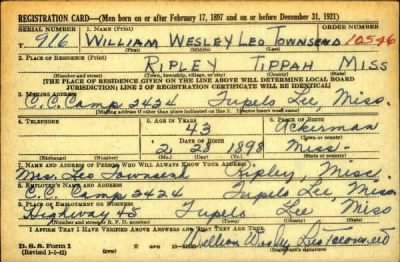 REGISTRATION CARD—(Men born on or after February 17, 1897 and on or before December 31, 1921)
SERIAL NUMBER 1. NAME (Print) ORDER NUMBER
916 WILLIAM WESLEY LEO TOWNSEND 10546
(First) (Middle) (Last)
2. PLACE OF RESIDENCE (Print)
RIPLEY TIPPAH MISS
(Number and street) (Town, township, village, or city) (County) (State)
[THE PLACE OF RESIDENCE GIVEN ON THE LINE ABOVE WILL DETERMINE LOCAL BOARD
JURISDICTION; LINE 2 OF REGISTRATION CERTIFICATE WILL BE IDENTICAL]
3. MAILING ADDRESS
C.C. Camp 2424 Tupelo Lee, Miss.
[Mailing address if other than place indicated on line 2. If same insert word same]
4. TELEPHONE 5. AGE IN YEARS 6. PLACE OF BIRTH
43 Ackerman
DATE OF BIRTH (Town or county)
2 28 1898 Miss.
(Exchange) (Number) (Mo.) (Day) (Yr.) (State or country)
7. NAME AND ADDRESS OF PERSON WHO WILL ALWAYS KNOW YOUR ADDRESS
Mrs. Leo Townsend Ripley, Miss.
8. EMPLOYER'S NAME AND ADDRESS
C.C. Camp 2424 Tupelo Lee, Miss
9. PLACE OF EMPLOYMENT OR BUSINESS
Highway 45 Tupelo Lee, Miss
(Number and street or R. F. D. number) (Town) (County) (State)
I AFFIRM THAT I HAVE VERIFIED ABOVE ANSWERS AND THAT THEY ARE TRUE.
D. S. S. Form 1
(Revised 1-1-42) William Wesley Leo Townsend